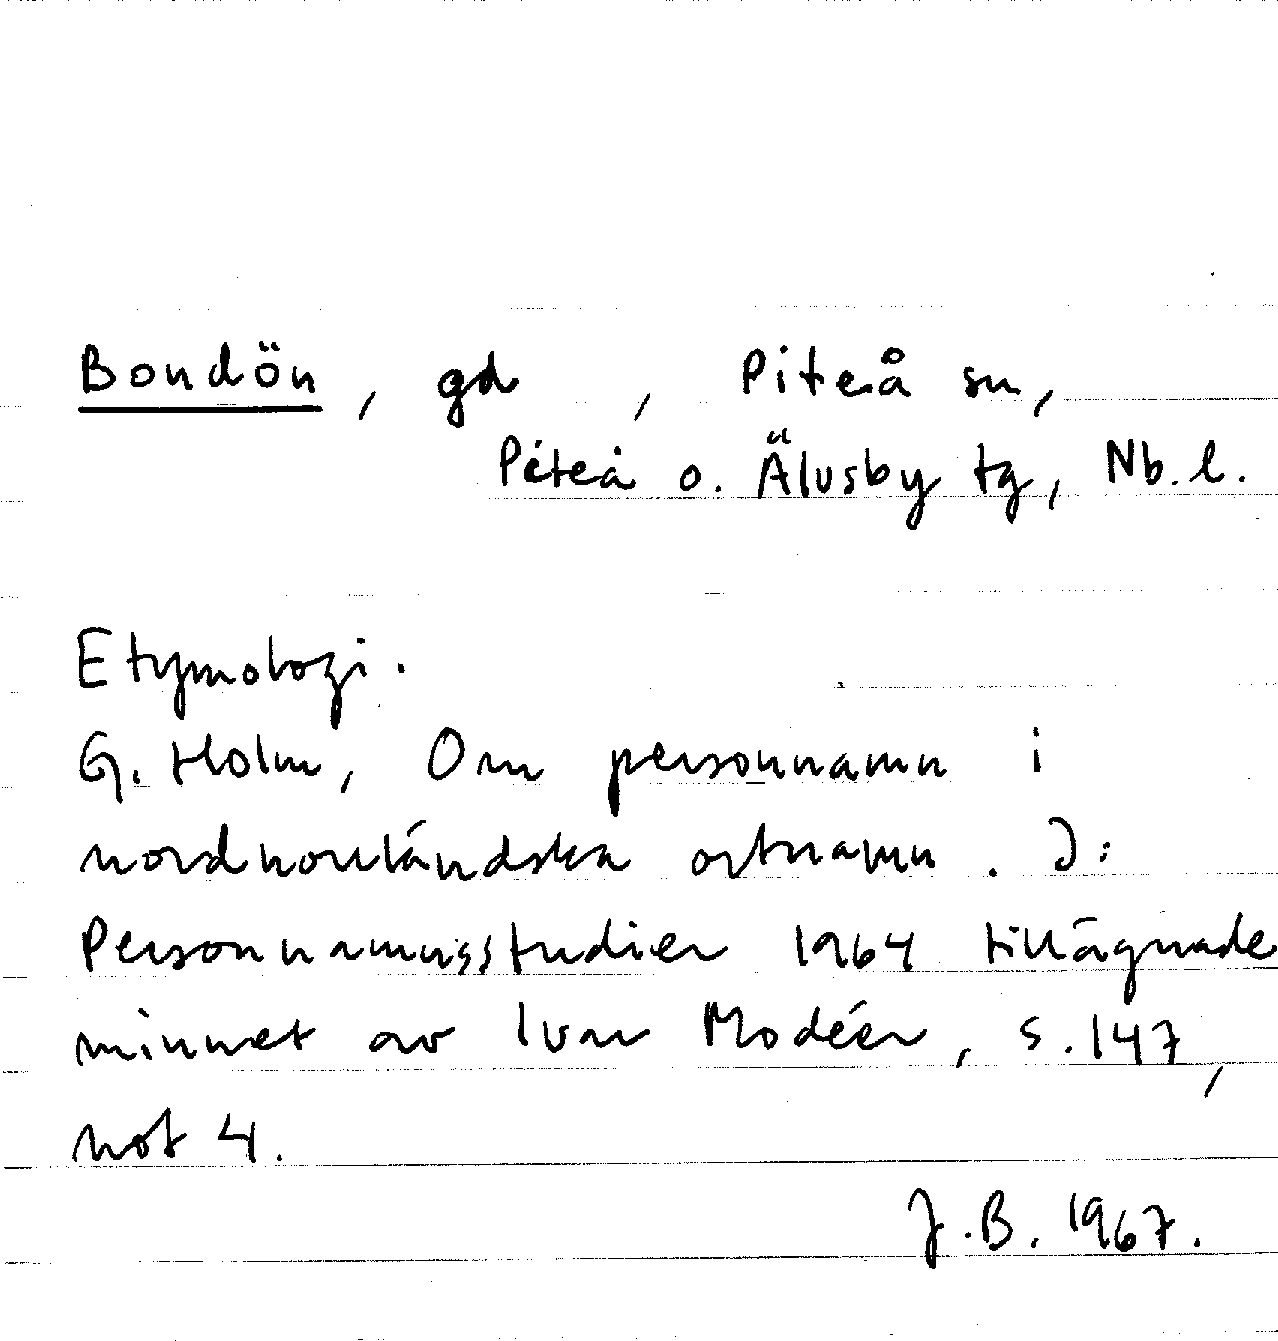 Bondön, gd, Piteå sn,
Piteå o. Älvsby tg, Nb. l.
Etymologi.
G. Holm, Om personnamn i
nordnorrländska ortnamn. I:
Personnamnsstudier 1964 tillägnade
minnet av Ivar Modéer, s. 147,
not 4.
J.B. 1967.